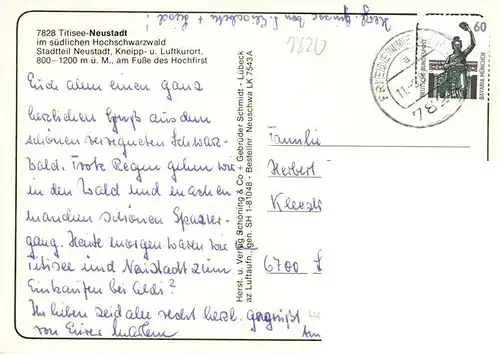 Herzl. Grüsse von
1820
7828 Titisee-Neustadt
im südlichen Hochschwarzwald
Stadtteil Neustadt, Kneipp- u. Luftkurort,
800–1200 m ü. M., am Fuße des Hochfirst
Euch allen einen ganz
herzlichen Gruß aus dem
schönen verregneten Schwarz-
wald. Trotz Regen gehen wir
in den Wald und machen
manchen schönen Spazier-
gang. Heute morgen waren wir in
Titisee und Neustadt zum
Einkaufen bei Aldi
Ihr Lieben seid alle recht herzl. gegrüßt
von Eurer
Herst. u. Verlag Schöning & Co + Gebrüder Schmidt - Lübeck
az Luftaufn., gen. SH 1-81048 - Bestellnr. Neuschwa LK 7543A
60
DEUTSCHE BUNDESPOST
BAVARIA MÜNCHEN
Familie
Herbert
6700